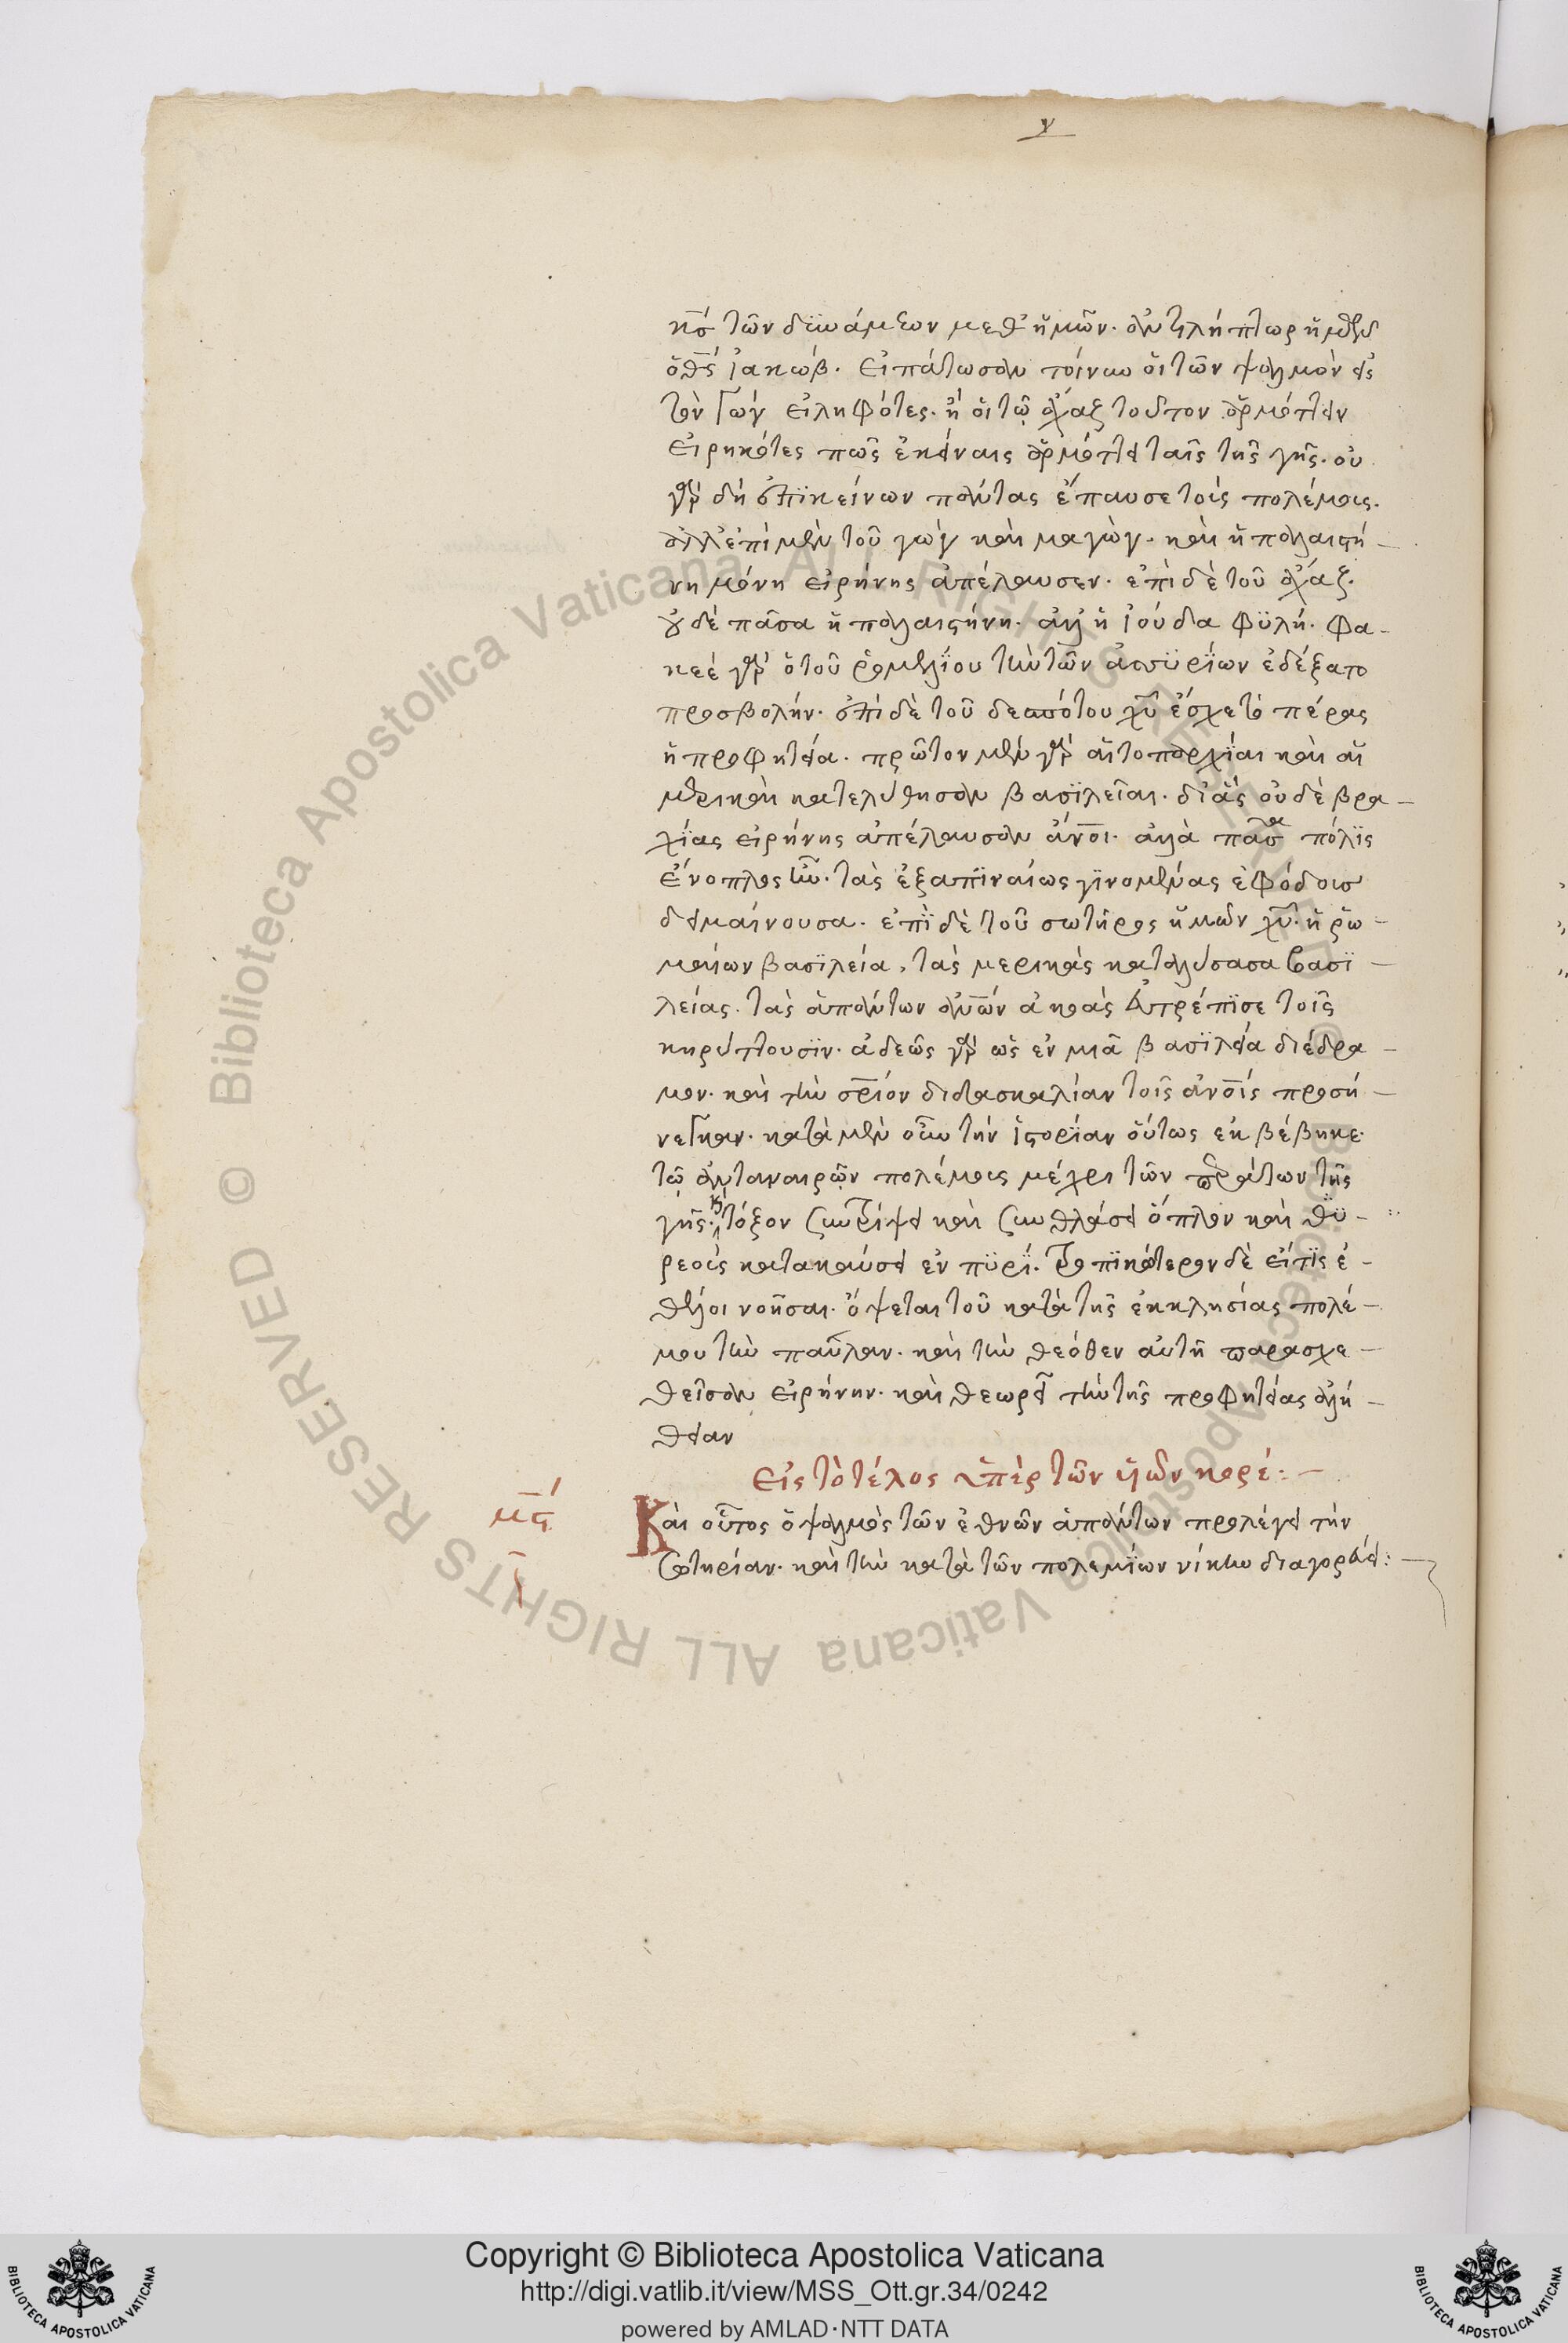 γ
κ̅ς̅ τῶν δυνάμεων μεθ ἡμῶν. ἀντιλήπτωρ ἡμῶν
ὁ θ̅ς̅ ἰακώβ. εἰπάτωσαν τοίνυν ὅι τῶν ψαλμὸν εἰς
τὸν Γὼγ εἰληφότες. ἢ ὅι τῷ ἄχαζ τοῦτον ἁρμόττειν
εἰρηκότες πῶς ἐκείναις ἁρμόττει ταῖς τῆς γῆς. οὐ
γὰρ δὴ ἐπἰκείνων πάντας ἔπαυσε τοὺς πολέμους.
ἀλλ ἐπὶ μὲν τοῦ γὼγ καὶ μαγὼγ. καὶ ἡ παλαιστή-
νη μόνη εἰρήνης ἀπέλαυσεν. ἐπὶ δὲ τοῦ ἄχαζ.
οὐδὲ πᾶσα ἡ παλαιστήνη. ἀλλ ἡ ἰούδα φϋλή. φα-
κεὲ γὰρ ὁ τοῦ ῥομελΐου τὴν τῶν ἀσσϋρΐων ἐδέξατο
προσβολήν. ἐπὶ δὲ τοῦ δεσπότου χ̅υ̅ ἔσχε τὸ πέρας
ἡ προφητεία. πρῶτον μὲν γὰρ αἱ τοπαρχΐαι καὶ αἱ
μερικαὶ κατελύθησαν βασϊλεῖαι. δι ἃς οὐδὲ βρα-
χΐας εἰρήνης ἀπέλαυσαν ἄν̅ο̅ι. ἀλλὰ πᾶσα πόλϊς
ἔνοπλος ἦν. τὰς ἐξαπϊναίως γϊνομένας ἐφόδους
δειμαίνουσα. ἐπῒ δὲ τοῦ σωτῆρος ἡμῶν χ̅υ̅. ἡ ῥω-
μαίων βασϊλεία, τὰς μερικὰς καταλύσασα βασϊ-
λείας. τὰς ἁπάντων ἀν̅ω̅ν ἀκοὰς εὐτρέπϊσε τοῖς
κηρύττουσϊν. ἀδεῶς γὰρ ὡς ἐν μιᾷ βασϊλεία διέδρα-
μον. καὶ τὴν σ̅ρ̅ιον διδασκαλίαν τοῖς ἀν̅ο̅ις προσή-
νεγκαν. κατὰ μὲν οὖν τὴν ἱστορΐαν ὅυτως ἐκβέβηκε.
τῷ ἀνταναιρῶν πολέμους μέχρι τῶν περάτων τῆς
γῆς. κ(αὶ) τόξον συντρίψει καὶ συνθλάσει ὅπλον καὶ θϋ-
ρεοὺς κατακαύσει ἐν πϋρΐ. τροπϊκώτερον δὲ εἴ τϊς ἐ-
θέλοι νοῆσαι. ὄψεται τοῦ κατὰ τῆς ἐκκλησίας πολέ-
μου τὴν παῦλαν. καὶ τὴν θεόθεν αὐτῇ παρασχε-
θεῖσαν εἰρήνην. καὶ θεωρεῖ τὴν τῆς προφητείας ἀλή-
θειαν
Εἰς τὸ τέλος ὑπὲρ τῶν υἱῶν κορέ:-
μ̅ϛ̅
Καὶ οὗτος ὁ ψαλμὸς τῶν ἐθνῶν ἁπάντων προλέγει τὴν
σωτηρίαν. καὶ τὴν κατὰ τῶν πολεμΐων νίκην διαγορεύει:-
Copyright © Biblioteca Apostolica Vaticana
http://digi.vatlib.it/view/MSS_Ott.gr.34/0242
powered by AMLAD·NTT DATA
© Biblioteca Apostolica Vaticana ALL RIGHTS RESERVED
© Biblioteca Apostolica Vaticana ALL RIGHTS RESERVED